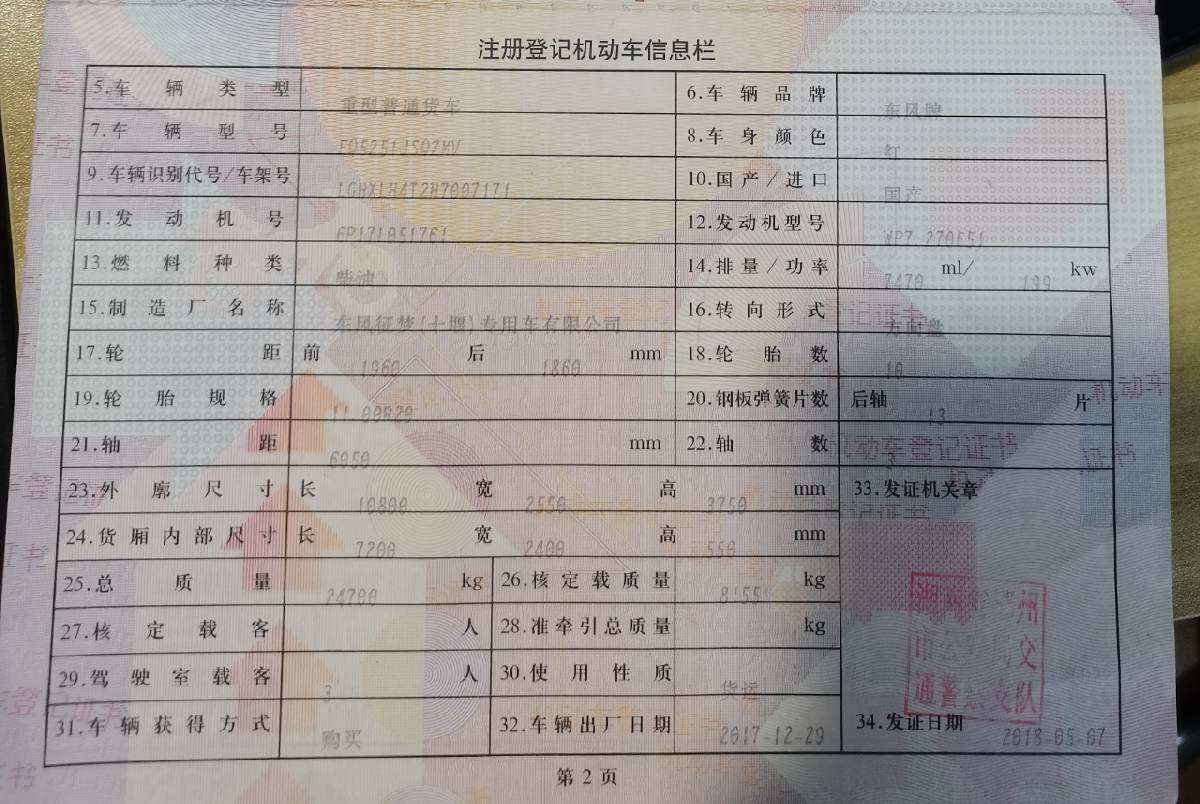 注册登记机动车信息栏
5.车辆类型 重型普通货车 6.车辆品牌 东风牌
7.车辆型号 8.车身颜色 红
9.车辆识别代号/车架号 10.国产/进口 国产
11.发动机号 6P17L051761 12.发动机型号
13.燃料种类 柴油 14.排量/功率 7470 ml/ 199 kw
15.制造厂名称 东风征梦(十堰)专用车有限公司 16.转向形式 方向盘
17.轮距 前 1960 后 1860 mm 18.轮胎数 10
19.轮胎规格 11.00R20 20.钢板弹簧片数 后轴 13 片
21.轴距 6050 mm 22.轴数 3
23.外廓尺寸 长 10800 宽 2550 高 3750 mm 33.发证机关章
24.货厢内部尺寸 长 7200 宽 2400 高 550 mm
25.总质量 24700 kg 26.核定载质量 kg
27.核定载客 人 28.准牵引总质量 kg
29.驾驶室载客 3 人 30.使用性质 货运
31.车辆获得方式 购买 32.车辆出厂日期 2017-12-29 34.发证日期 2018-05-07
第 2 页